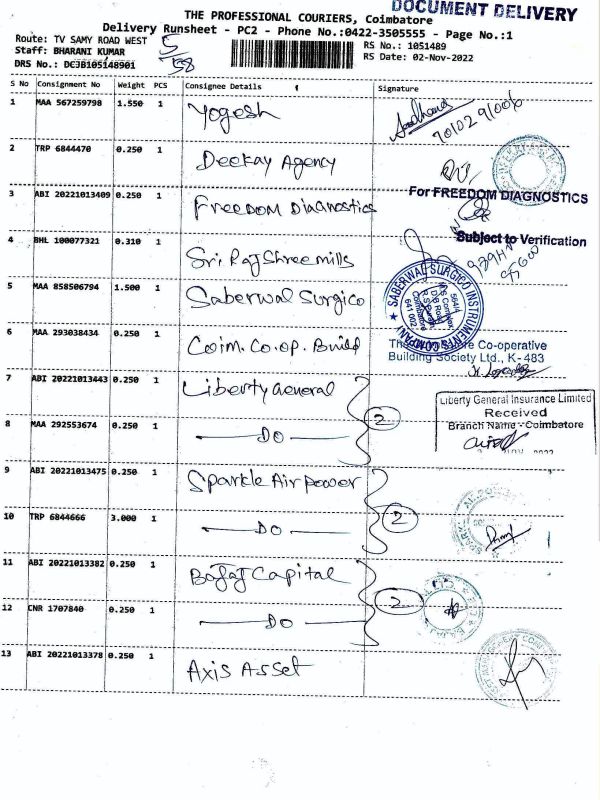 DOCUMENT DELIVERY
THE PROFESSIONAL COURIERS, Coimbatore
Delivery Runsheet - PC2 - Phone No.:0422-3505555 - Page No.:1
Route: TV SAMY ROAD WEST
Staff: BHARANI KUMAR
DRS No.: DCJB105148901
5/58
RS No.: 1051489
RS Date: 02-Nov-2022
S No Consignment No Weight PCS Consignee Details Signature
1 MAA 567259798 1.550 1 Yogesh
2 TRP 6844470 0.250 1 Deekay Agency
3 ABI 20221013409 0.250 1 Freedom Diagnostics
For FREEDOM DIAGNOSTICS
4 BHL 100077321 0.310 1 Sri Raj Shree mills
Subject to Verification
5 MAA 858506794 1.500 1 Saberwal Surgico
SABERWAL SURGICO INSTRUMENTS COMPANY
564/4
D.B. Road
R.S. Puram
Coimbatore
641 002
6 MAA 293038434 0.250 1 Coim. Co.op. Build
Co-operative
Building Society Ltd., K-483
7 ABI 20221013443 0.250 1 Liberty General
Liberty General Insurance Limited
Received
Branch Name - Coimbatore
8 MAA 292553674 0.250 1 DO
2
9 ABI 20221013475 0.250 1 Sparkle Air power
10 TRP 6844666 3.000 1 DO
2
11 ABI 20221013382 0.250 1 Bajaj Capital
12 CNR 1707840 0.250 1 DO
2
13 ABI 20221013378 0.250 1 Axis Asset